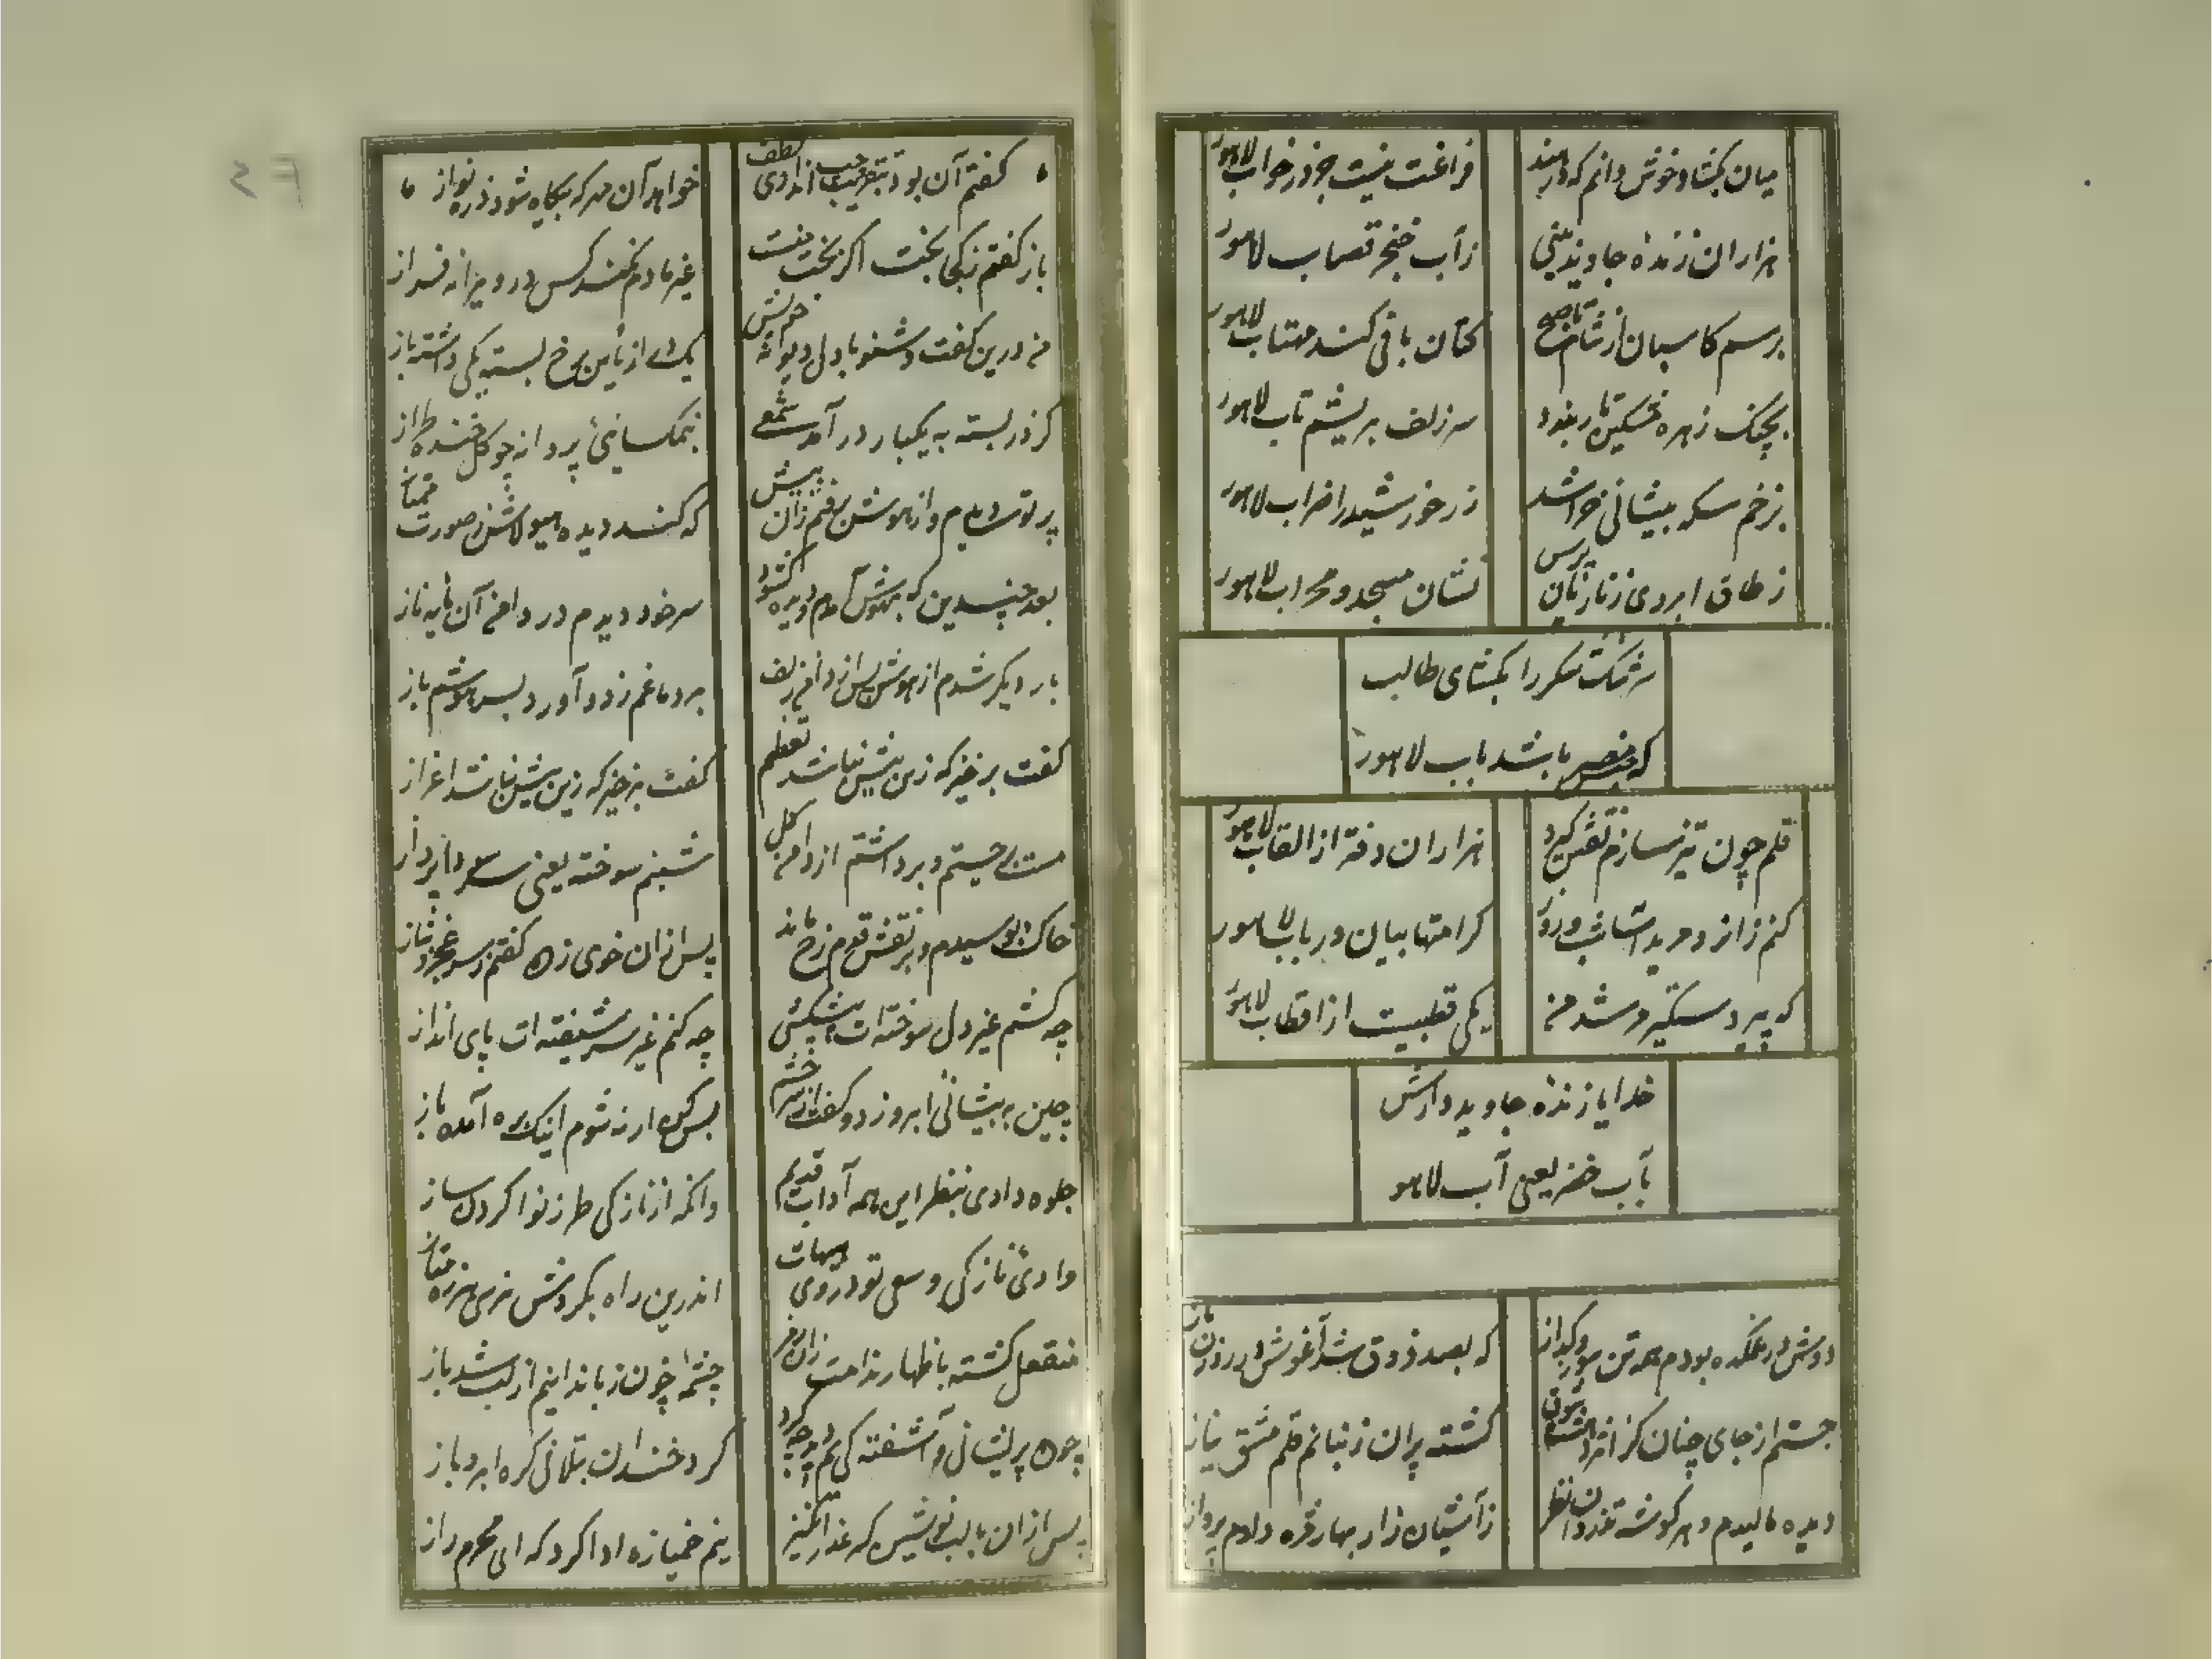 میان بکشا و خوش وانم که در هند
فراغت نیست جز در خواب لاهور
هزاران زنده جاوید بینی
ز آب خنجر قصاب لاهور
برسم کاسبان از شام تا صبح
کتان بافی کند مهتاب لاهور
بچنگ زهره مشکین تار بندد
سر زلف بریشم تاب لاهور
بزخم سکه پیشانی خراشد
زر خورشید را ضراب لاهور
ز طاق ابروی زنار زنان پرس
نشان مسجد و محراب لاهور
سر تنگ شکر را بکشای طالب
که باشد باب لاهور
قلم چون تیز سازم نقش گیرد
هزاران دفتر از القاب لاهور
کنم زانرو مریدانش شب و روز
کرامتها بیان در باب لاهور
که پیر دستگیر مرشد من
یکی قطبیست از اقطاب لاهور
خدایا زنده جاوید دارش
بآب خضر یعنی آب لاهور
دوش در غمکده بودم همه تن سوز و گداز
که بصد ذوق شد آغوش در روزن باز
جستم از جای چنان کز اثر
گشته پران ز بنانم قلم مشق نیاز
دیده مالیدم و هر گوشه
ز آشیان زار بهار مژه دادم پرواز
گفتم آن بود لطف
خواهد آن مهر که بیگاه شود ذره نواز
باز گفتم نه کجا بخت اگر بخت منست
غیر ماتم نکند کس در ویرانه فراز
من درین گفت و شنو با دل دیوانه خویش
یک در از یأس برخ بسته یکی داشته باز
کز در بسته به یکبار در آمد شمعی
نمکستانی پروانه چو گل خنده طراز
پرتوش دیدم و از هوش برفتم زان پیش
که کند دیده هیولاش ز صورت ممتاز
بعد چندین که بهوش آمدم و دیده گشود
سر خود دیدم در دامن آن مایه ناز
بار دیگر شدم از هوش پس از دامن زلف
بر دماغم زد و آورد بسر هوشم باز
گفت برخیز که زین بیش نباشد تعظیم
گفت برخیز که زین بیش نباشد اعزاز
جستم و برداشتم از دامن گل
شبنم سوخته یعنی سر سودا پرداز
خاک بوسیدم و بر نقش قدم رخ ماند
پس از آن خوی زده گفتم ز سر عجز و نیاز
چه کشم غیر دل سوخته ات پیشکشی
چه کنم غیر سر شیفته ات پای انداز
چین به پیشانی ابرو زد و گفت از سر خشم
بس کن ار نه شوم اینک بره آمده باز
جلوه دادی بنظر این همه آداب قدیم
وانکه از نازکی طرز نوا کردی ساز
وادی نازکی و سعی تو در وی هیهات
اندرین راه بگردش نرسی هرزه متاز
منفعل گشته باظهار ندامت زان رمز
چشمه خون ز باندانیم از لب شد باز
چون پریشانی و آشفتگیم دید چو گرد
کرد خندان بتلافی گره ابرو باز
پس از آن با لب نوشین که عذر انگیز
نیم خمیازه ادا کرد که ای محرم راز